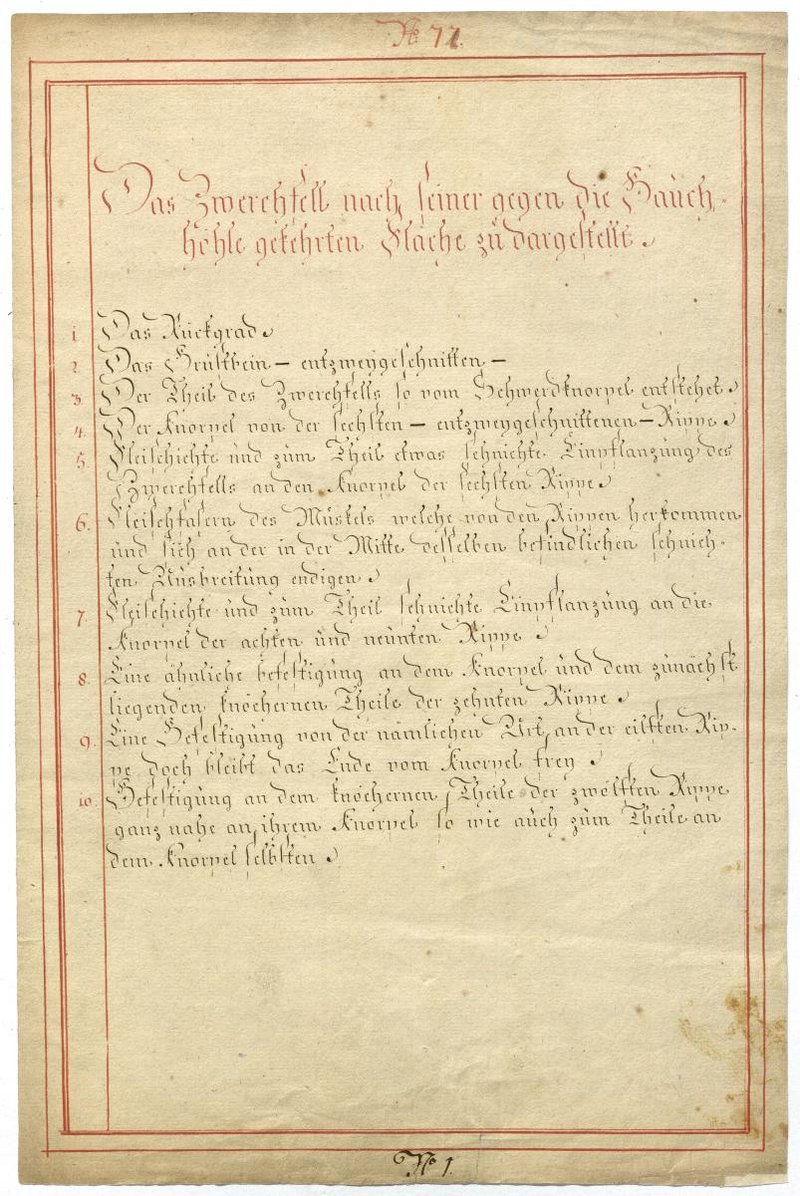 No. 77.
Das Zwerchfell nach seiner gegen die Bauch-
höhle gekehrten Fläche zu dargestellt.
1 Das Rückgrad.
2. Das Brustbein – entzweygeschnitten –
3. Der Theil des Zwerchfells so vom Schwerdknorpel entstehet.
4. Der Knorpel von der sechsten – entzweygeschnittenen – Rippe.
5. Fleischichte und zum Theil etwas sehnichte Einpflanzung des
Zwerchfells an den Knorpel der sechsten Rippe.
6. Fleischfasern des Muskels welche von den Rippen herkommen
und sich an der in der Mitte desselben befindlichen sehnich-
ten Ausbreitung endigen.
7. Fleischichte und zum Theil sehnichte Einpflanzung an die
Knorpel der achten und neunten Rippe.
8. Eine ähnliche befestigung an dem Knorpel und dem zunächst
liegenden knöchernen Theile der zehnten Rippe.
9. Eine Befestigung von der nämlichen Art an der eilften Rip-
pe doch bleibt das Ende vom Knorpel frey.
10 Befestigung an dem knöchernen Theile der zwölften Rippe
ganz nahe an ihrem Knorpel so wie auch zum Theile an
dem Knorpel selbsten.
No 1.